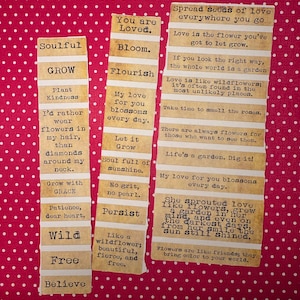 Soulful
GROW
Plant
Kindness
I'd rather
wear
flowers in
my hair,
than
diamonds
around my
neck.
Grow with
GRACE
Patience,
dear heart.
Wild
Free
Believe
You are
Loved.
Bloom.
Flourish
My love
for you
blossoms
every day.
Let it
Grow
Soul full of
sunshine.
No grit,
no pearl.
Persist
Like a
wildflower;
beautiful,
fierce, and
free.
Spread seeds of love
everywhere you go
Love is the flower you've
got to let grow.
If you look the right way,
the whole world is a garden
Love is like wildflowers;
it's often found in the
most unlikely places.
Take time to smell the roses.
There are always flowers for
those who want to see
Life's a garden, Dig it!
My love for you blossoms
every day.
She sprouted love
like flowers, grew
a garden in her
mind, and even on
the darkest days,
from her smile the
sun still shined.
Flowers are like friends; they
bring color to your world.